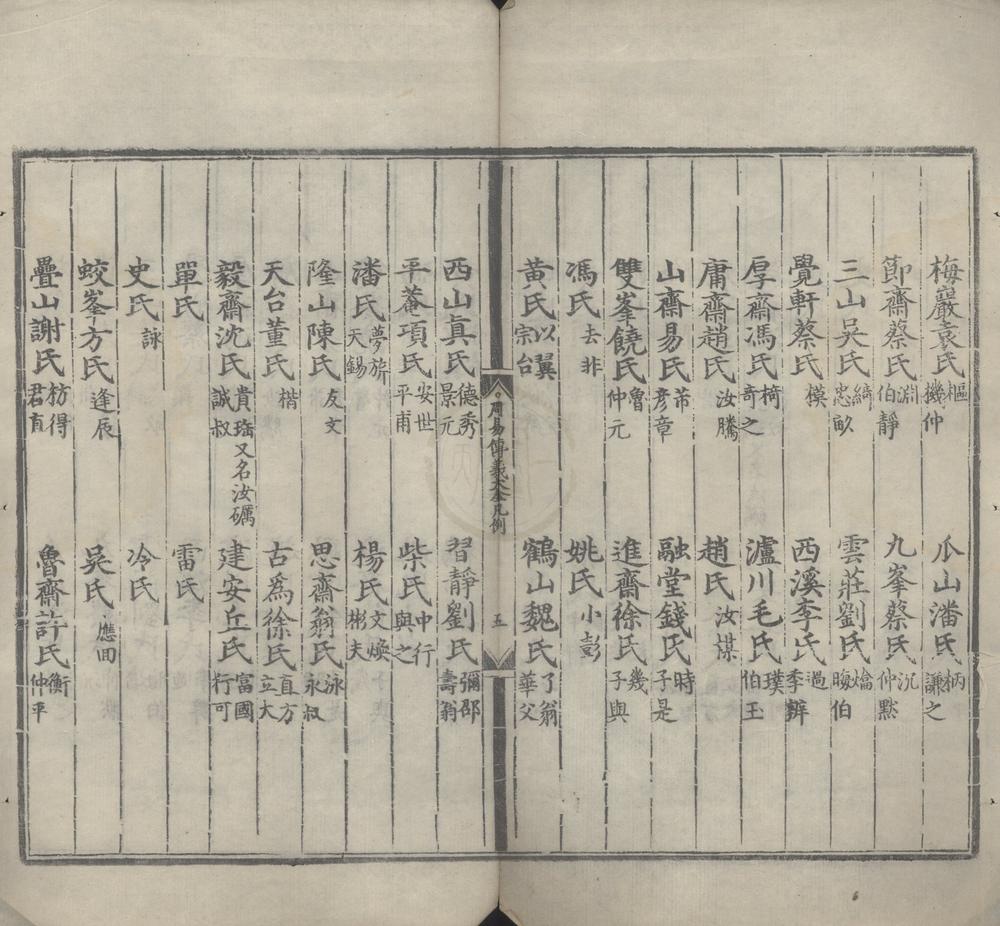 梅巖袁氏樞機仲　瓜山潘氏柄謙之
節齋蔡氏淵伯靜　九峯蔡氏沉仲默
三山吳氏綺忠畝　雲莊劉氏爚晦伯
覺軒蔡氏模　西溪李氏過季辨
厚齋馮氏椅奇之　瀘川毛氏璞伯玉
庸齋趙氏汝騰　趙氏汝楳
山齋易氏芾彦章　融堂錢氏時子是
雙峯饒氏魯仲元　進齋徐氏幾子與
馮氏去非　姚氏小彭
黃氏以翼宗台　鶴山魏氏了翁華父
周易傳義大全凡例　五
西山眞氏德秀景元　習靜劉氏彌邵壽翁
平菴項氏安世平甫　柴氏中行與之
潘氏夢旂天錫　楊氏文煥彬夫
隆山陳氏友文　思齋翁氏泳永叔
天台董氏楷　古爲徐氏直方立大
毅齋沈氏貴珤誠叔又名汝礪　建安丘氏富國行可
單氏　雷氏
史氏詠　冷氏
蛟峯方氏逢辰　吳氏應回
疊山謝氏枋得君直　魯齋許氏衡仲平